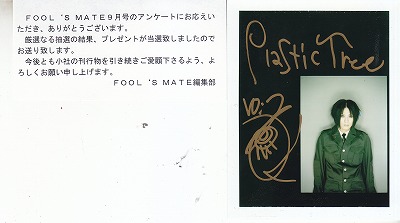 ＦＯＯＬ’Ｓ ＭＡＴＥ９月号のアンケートにお応えい
ただき、ありがとうございます。
厳選なる抽選の結果、プレゼントが当選致しましたので
お送り致します。
今後とも小社の刊行物を引き続きご愛顧下さるよう、よ
ろしくお願い申し上げます。
ＦＯＯＬ’Ｓ ＭＡＴＥ編集部
Plastic Tree